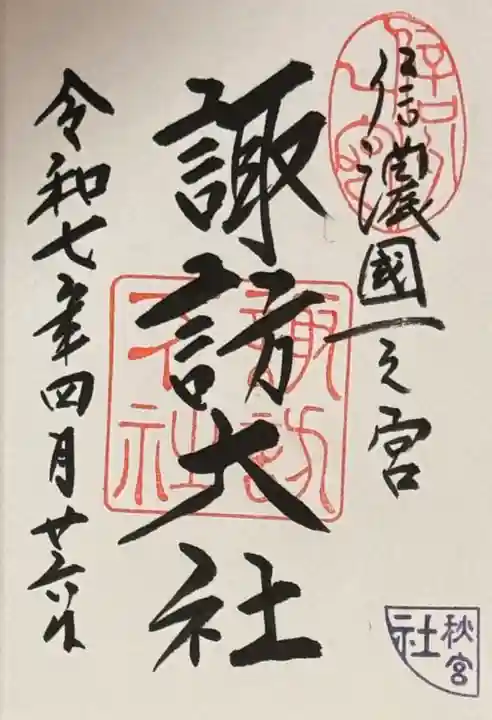 信濃國一之宮
諏訪大社
令和七年四月廿六日
諏訪
大社
秋宮
社